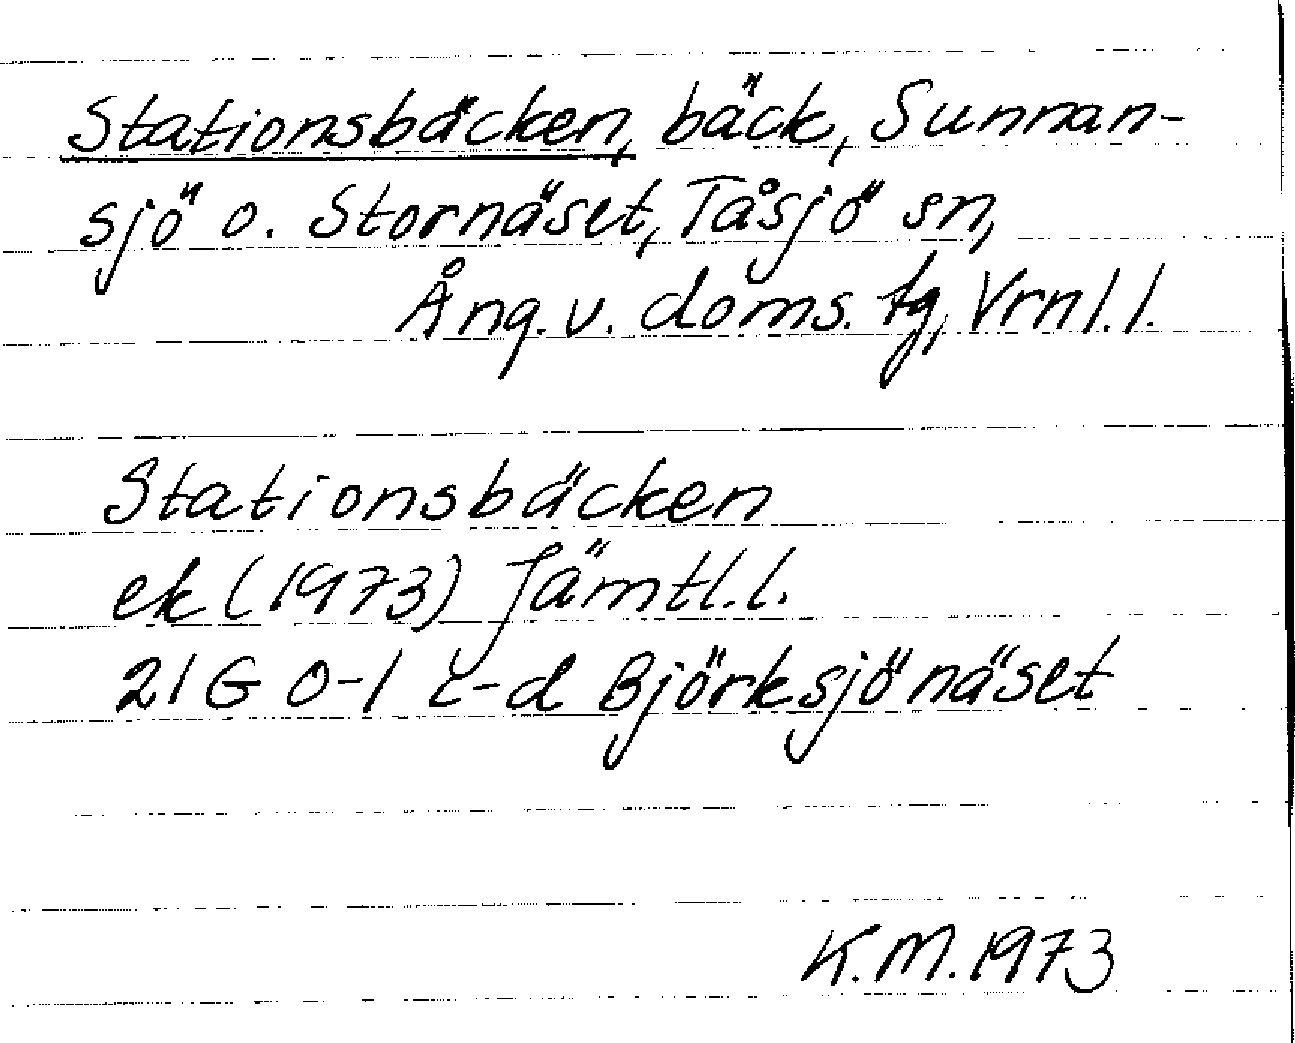 Stationsbäcken, bäck, Sunnan-
sjö o. Stornäset, Tåsjö sn,
Ång. v. doms. tg, Vrnl. l.
Stationsbäcken
ek (1973) Jämtl. l.
21 G 0-1 c-d Björksjönäset
K. M. 1973